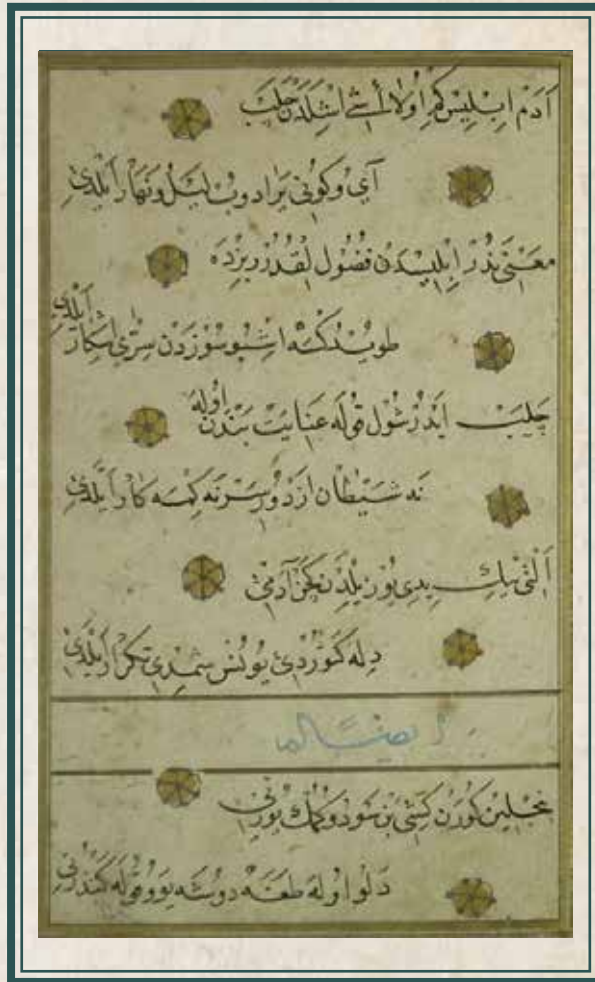 آدم ابليس كم اولا أشى اشلدن چلب
آي و كونى يرادوب ليل و نهار ايلدي
معنى بذر ابليسدن فضول لقدر بزده
طويدكسه اشبو سوزدن سرى اشكار ايلدي
چلب ايدر شول قوله عنايت بندن اوله
نه شيطان ازدورسر نه كمسه كار ايلدي
التى بيك يدى يوز يلدن كچن آدمى
دله كتوردى يونس شمدى تكرار ايلدي
ايضا له
كورن كشى بن سودوكمك يوزنى
دلو اوله طغه دوشه